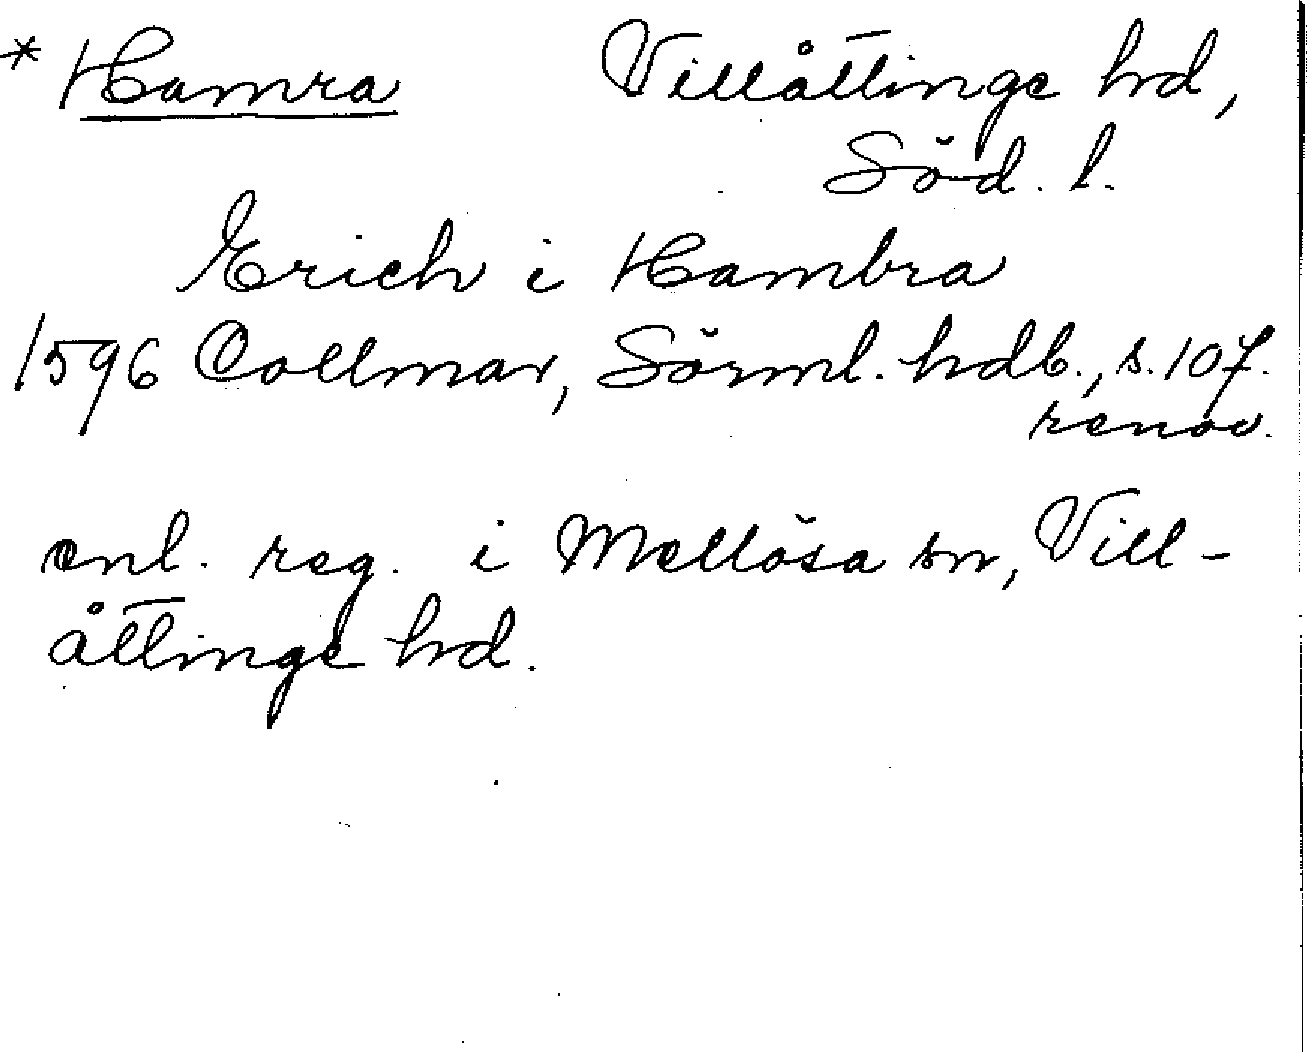 * Hamra Villåttinge hd,
Söd. l.
Erich i Hambra
1596 Collmar, Sörml. hdb., s. 107.
renov.
enl. reg. i Mellösa sn, Vill-
åttinge hd.